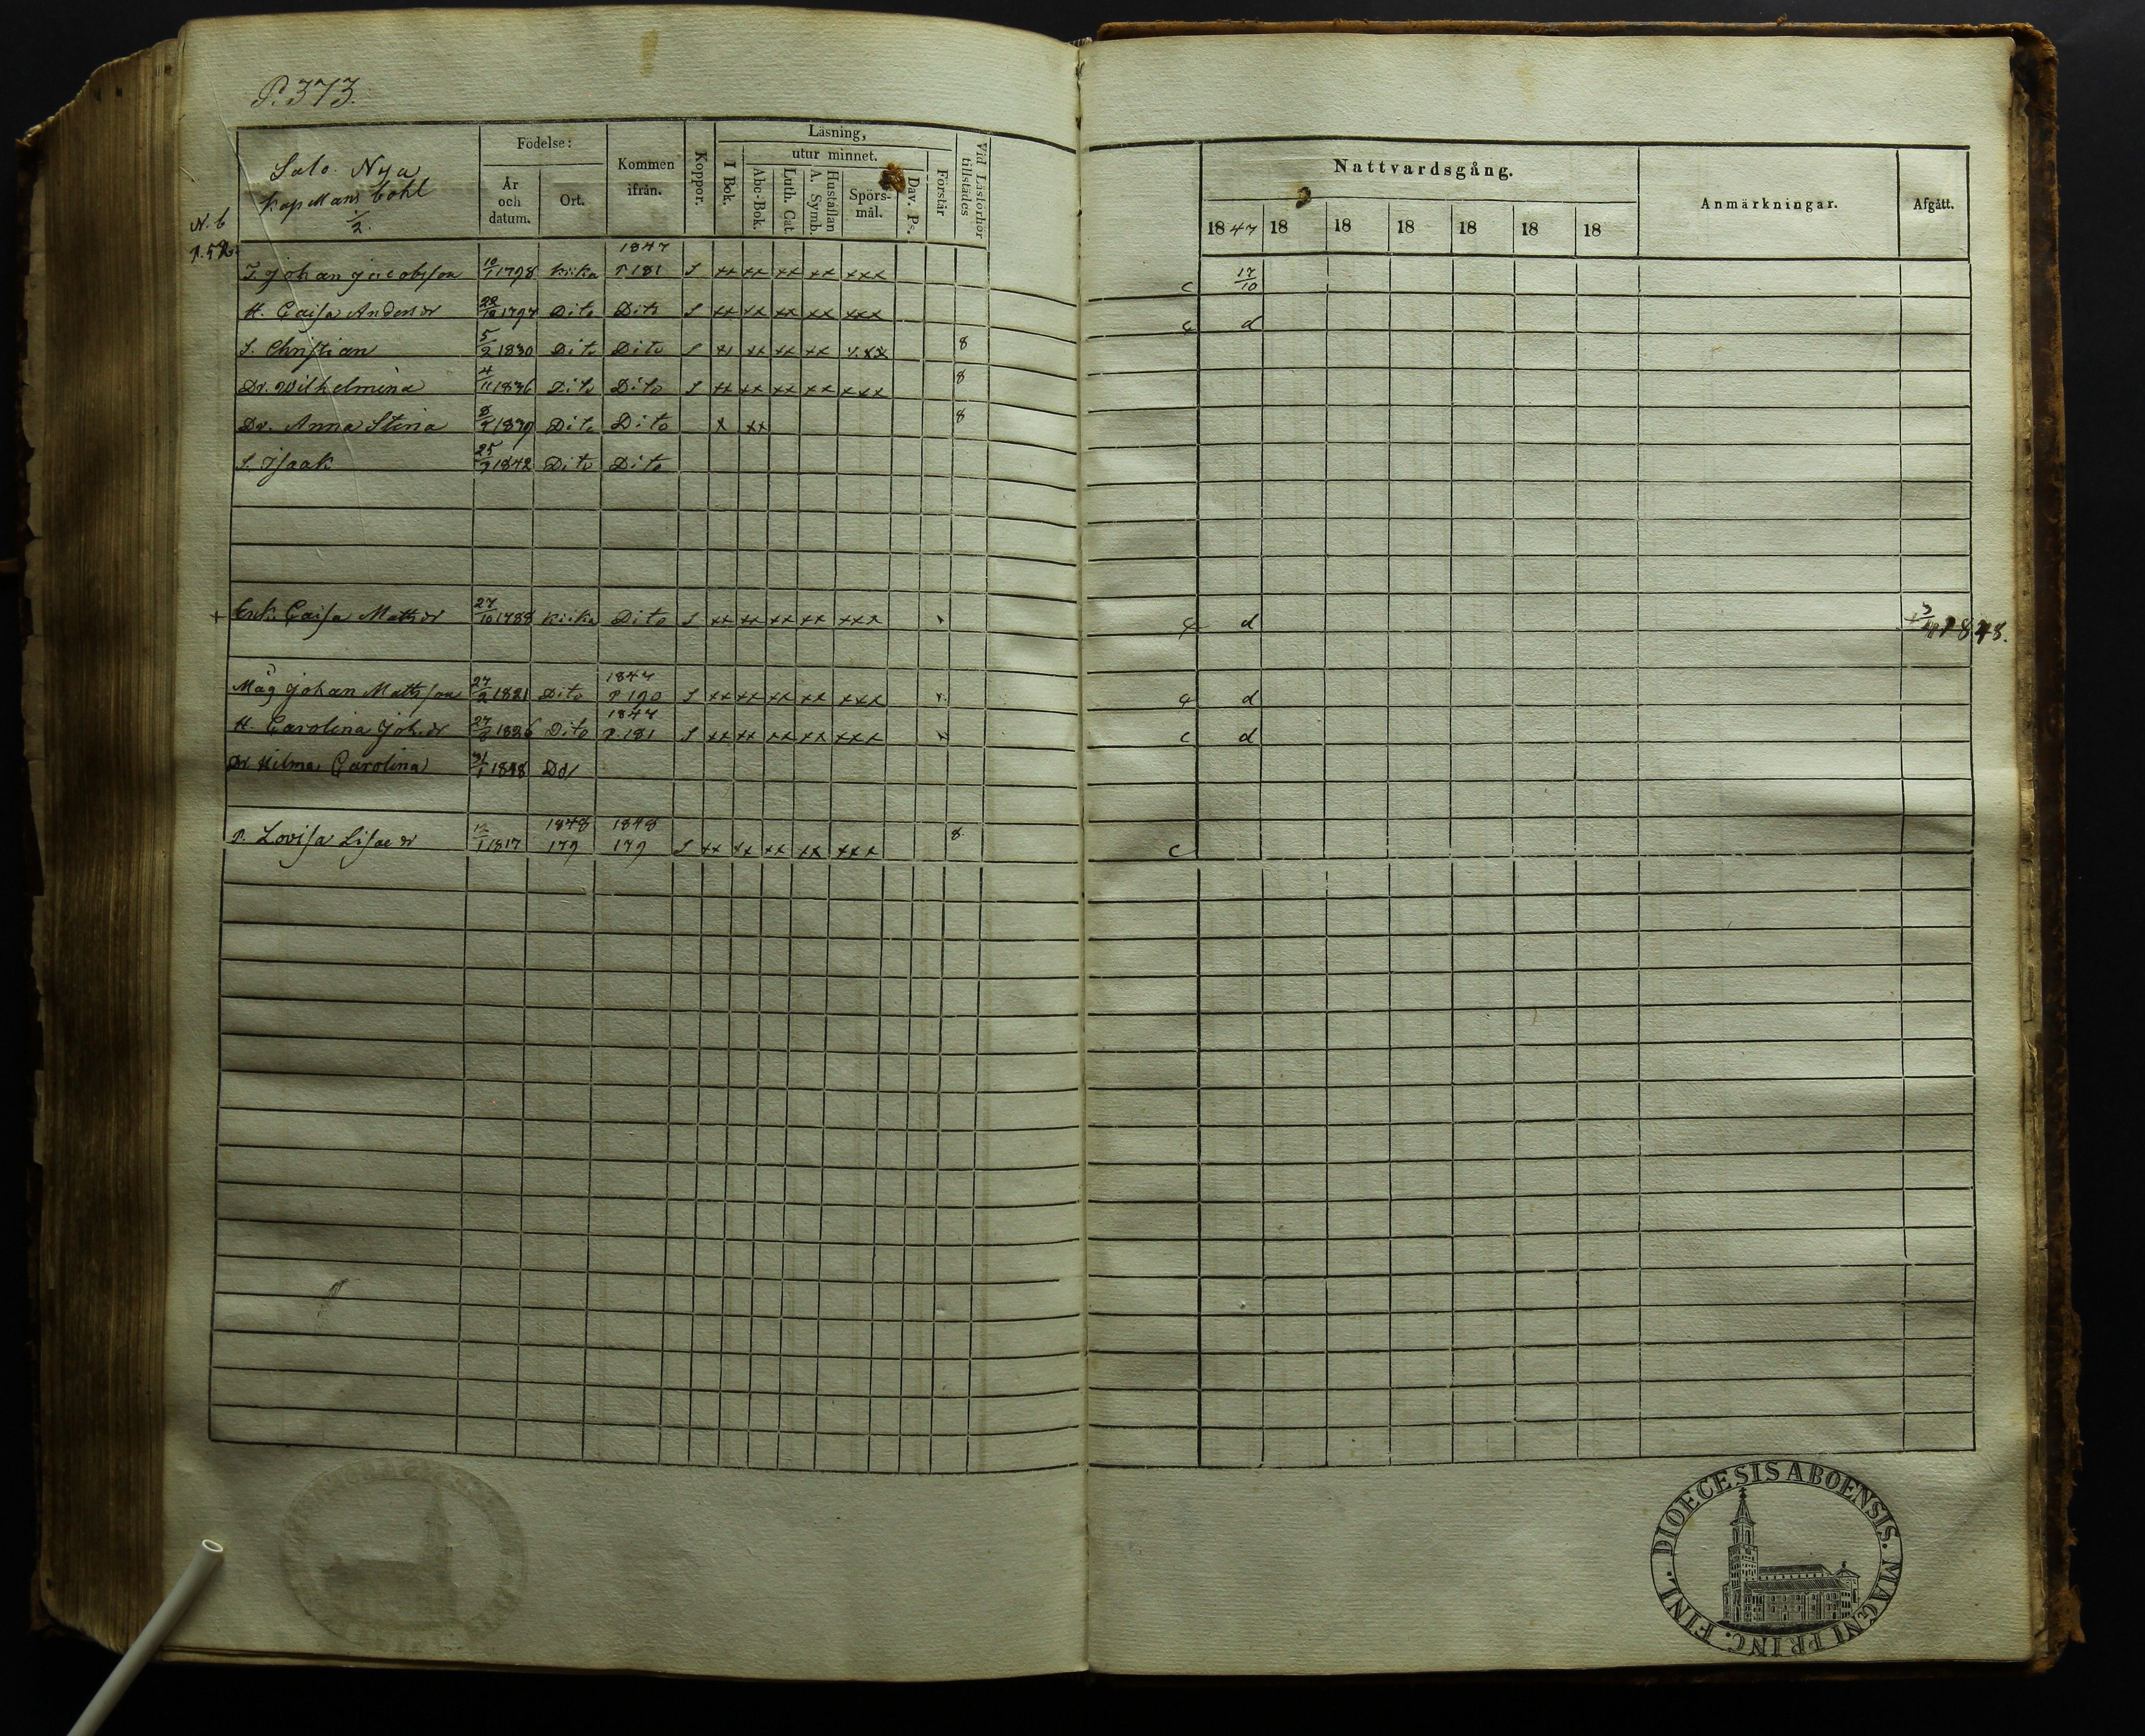 P. 373.
Salo Nya
Kapellans bohl
1/2.
N. 6
p. 52.
Födelse:
År och datum.
Ort.
Kommen ifrån.
Koppor.
Läsning,
I Bok.
utur minnet.
Abc-Bok.
Luth. Cat
Hustaflan A. Symb.
Spörs-mål.
Dav. Ps.
Förstår
Vid Läsförhör tillstädes
Nattvardsgång.
1847 18 18 18 18 18 18
Anmärkningar.
Afgått.
1847
T. Johan Jacobsson 10/1 1798 Kiika P 181 S xx xx xx xx xxx c 17/10
H. Caisa Andersdr 22/12 1797 Dito Dito S xx xx xx xx xxx c d
S. Christian 5/2 1830 Dito Dito S xx xx xx xx xxx 8
Dr. Wilhelmina 4/11 1836 Dito Dito S xx xx xx xx xxx 8
Dr. Anna Stina 8/5 1839 Dito Dito x xx 8
S. Isaak 25/9 1842 Dito Dito
+ Enk. Caisa Mattsdr 27/10 1788 Kiika Dito S xx xx xx xx xxx x c d + 3/4 1848.
1847
Måg Johan Mattsson 27/2 1821 Dito P 190 S xx xx xx xx xxx x c d
1847
H. Carolina Joh.dr 27/8 1826 Dito P. 181 S xx xx xx xx xxx x c d
Dr Hilma Carolina 31/1 1848 Do/
1848 1848
P. Lovisa Lisaedr 12/1 1817 179 179 S xx xx xx xx xxx 8 c
DIOECESIS ABOENSIS. MAGNI PRINC. FINL.